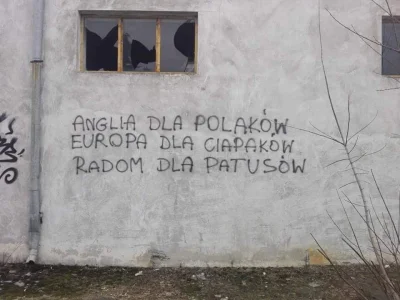 ANGLIA DLA POLAKÓW
EUROPA DLA CIAPAKÓW
RADOM DLA PATUSÓW